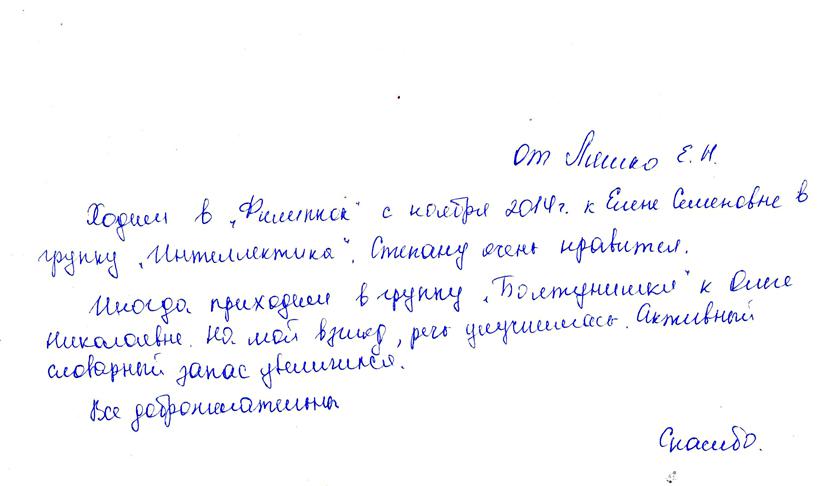 от Ляшко Е.Н.
Ходим в „Филиппок" с ноября 2014г. к Елене Семеновне в
группу „Интеллектика". Степану очень нравится.
Иногда приходим в группу „Болтунишки" к Ольге
Николаевне. На мой взгляд, речь улучшилась. Активный
словарный запас увеличился.
Все доброжелательны
Спасибо.